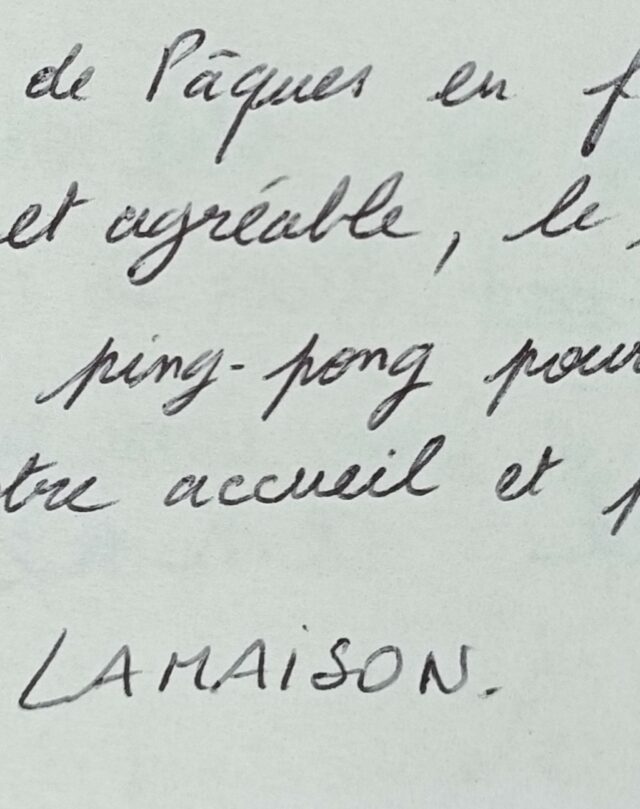 de Pâques en f
et agréable, le
ping-pong pour
tre accueil et p
LAMAISON.